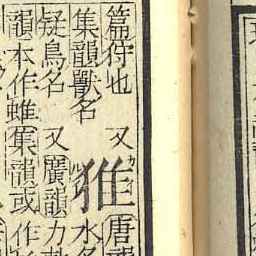 篇狩也 又
集韻獸名
猚
唐韻
水名
疑鳥名 又廣韻力
韻本作蜼集韻或作